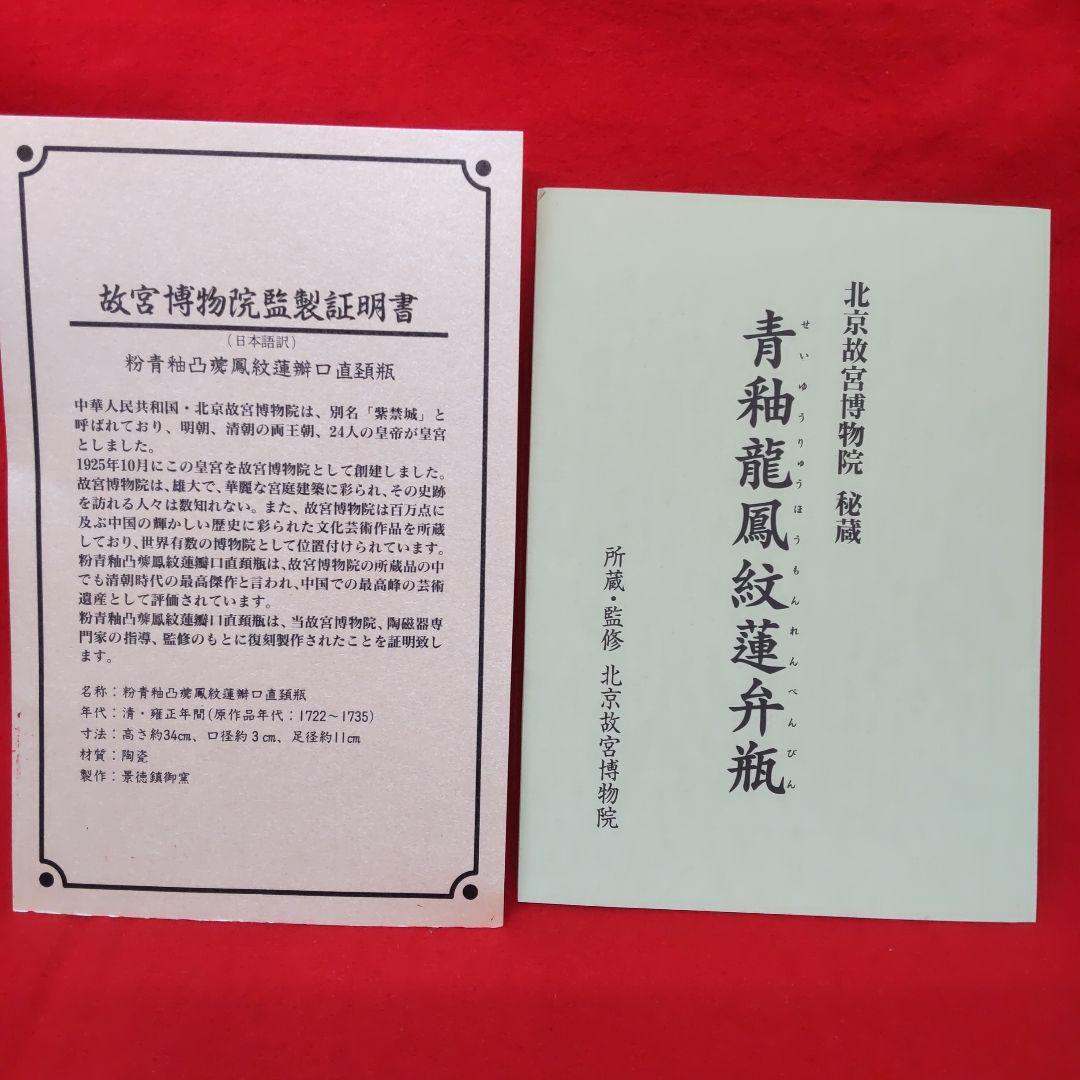 故宮博物院監製証明書
(日本語訳)
粉青釉凸夔鳳紋蓮瓣口直頚瓶
中華人民共和国・北京故宮博物院は、別名「紫禁城」と
呼ばれており、明朝、清朝の両王朝、24人の皇帝が皇宮
としました。
1925年10月にこの皇宮を故宮博物院として創建しました。
故宮博物院は、雄大で、華麗な宮庭建築に彩られ、その史跡
を訪れる人々は数知れない。また、故宮博物院は百万点に
及ぶ中国の輝かしい歴史に彩られた文化芸術作品を所蔵
しており、世界有数の博物院として位置付けられています。
粉青釉凸夔鳳紋蓮瓣口直頚瓶は、故宮博物院の所蔵品の中
でも清朝時代の最高傑作と言われ、中国での最高峰の芸術
遺産として評価されています。
粉青釉凸夔鳳紋蓮瓣口直頚瓶は、当故宮博物院、陶磁器専
門家の指導、監修のもとに復刻製作されたことを証明致し
ます。
名称：粉青釉凸夔鳳紋蓮瓣口直頚瓶
年代：清・雍正年間(原作品年代：1722～1735)
寸法：高さ約34cm、口径約3cm、足径約11cm
材質：陶瓷
製作：景徳鎮御窯
北京故宮博物院 秘蔵
青釉龍鳳紋蓮弁瓶
せいゆうりゅうほうもんれんべんびん
所蔵・監修 北京故宮博物院